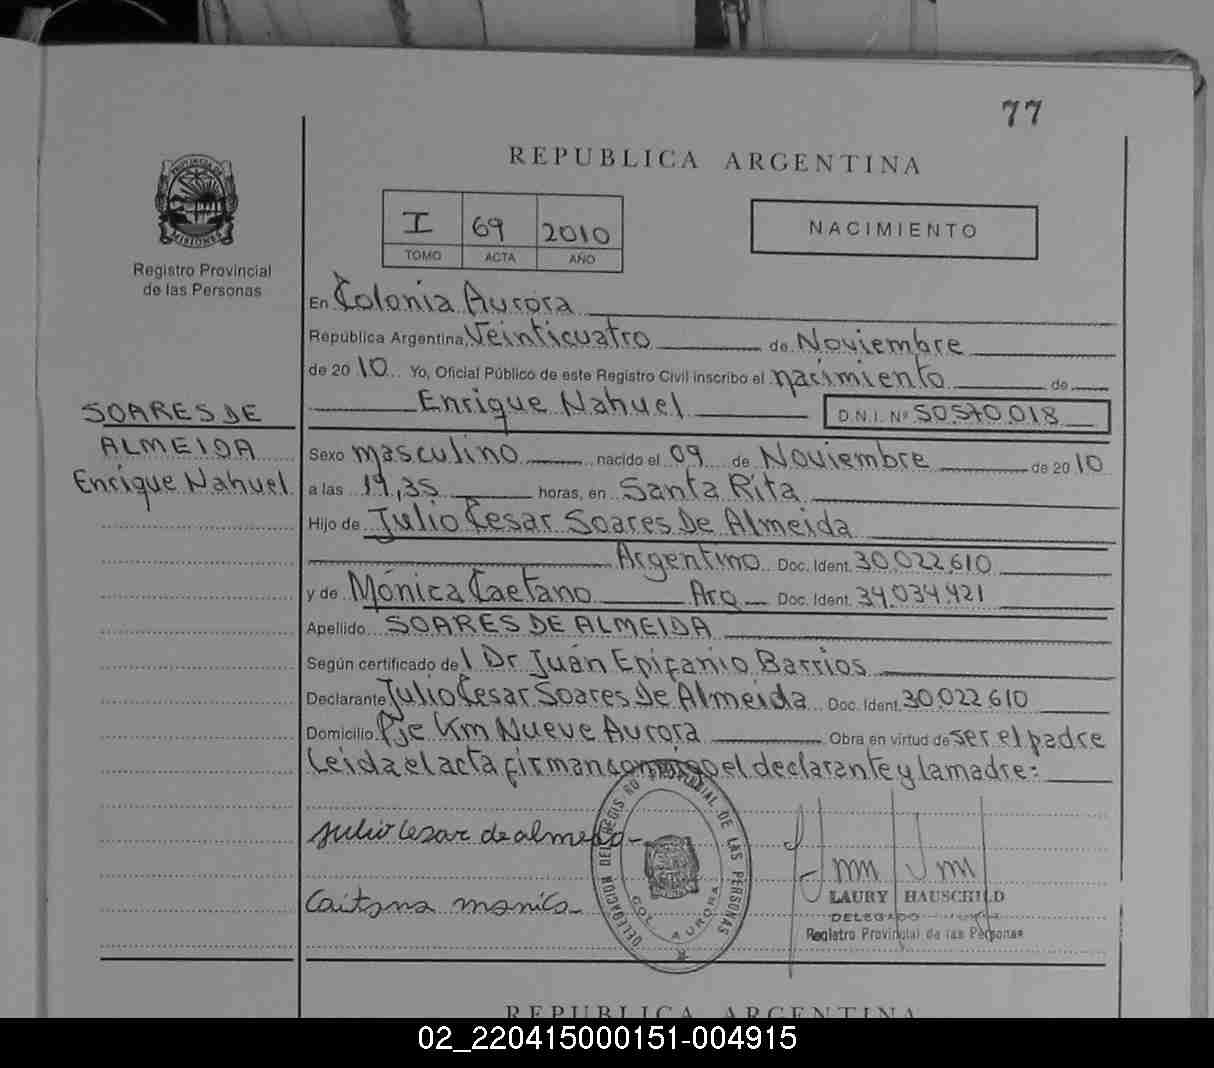 77
REPUBLICA ARGENTINA
PROVINCIA DE
MISIONES
Registro Provincial
de las Personas
I 69 2010
TOMO ACTA AÑO
NACIMIENTO
En Colonia Aurora
República Argentina, Veinticuatro de Noviembre
de 2010 Yo, Oficial Público de este Registro Civil inscribo el nacimiento de
Enrique Nahuel D.N.I. Nº 50.570.018
SOARES DE
ALMEIDA
Enrique Nahuel
Sexo masculino nacido el 09 de Noviembre de 2010
a las 19,35 horas, en Santa Rita
Hijo de Julio Cesar Soares De Almeida
Argentino Doc. Ident. 30.022.610
y de Mónica Caetano Arg Doc. Ident. 34.034.921
Apellido SOARES DE ALMEIDA
Según certificado del Dr Juan Epifanio Barrios
Declarante Julio Cesar Soares De Almeida Doc. Ident. 30.022.610
Domicilio Pje Km Nueve Aurora Obra en virtud de ser el padre
Leida el acta firman conmigo el declarante y la madre:
Julio Cesar de almeida
Caitana monica
DELEGACION DEL REGISTRO PROVINCIAL DE LAS PERSONAS
COL. AURORA
LAURY HAUSCHILD
DELEGADO
Registro Provincial de las Personas
REPUBLICA ARGENTINA
02_220415000151-004915